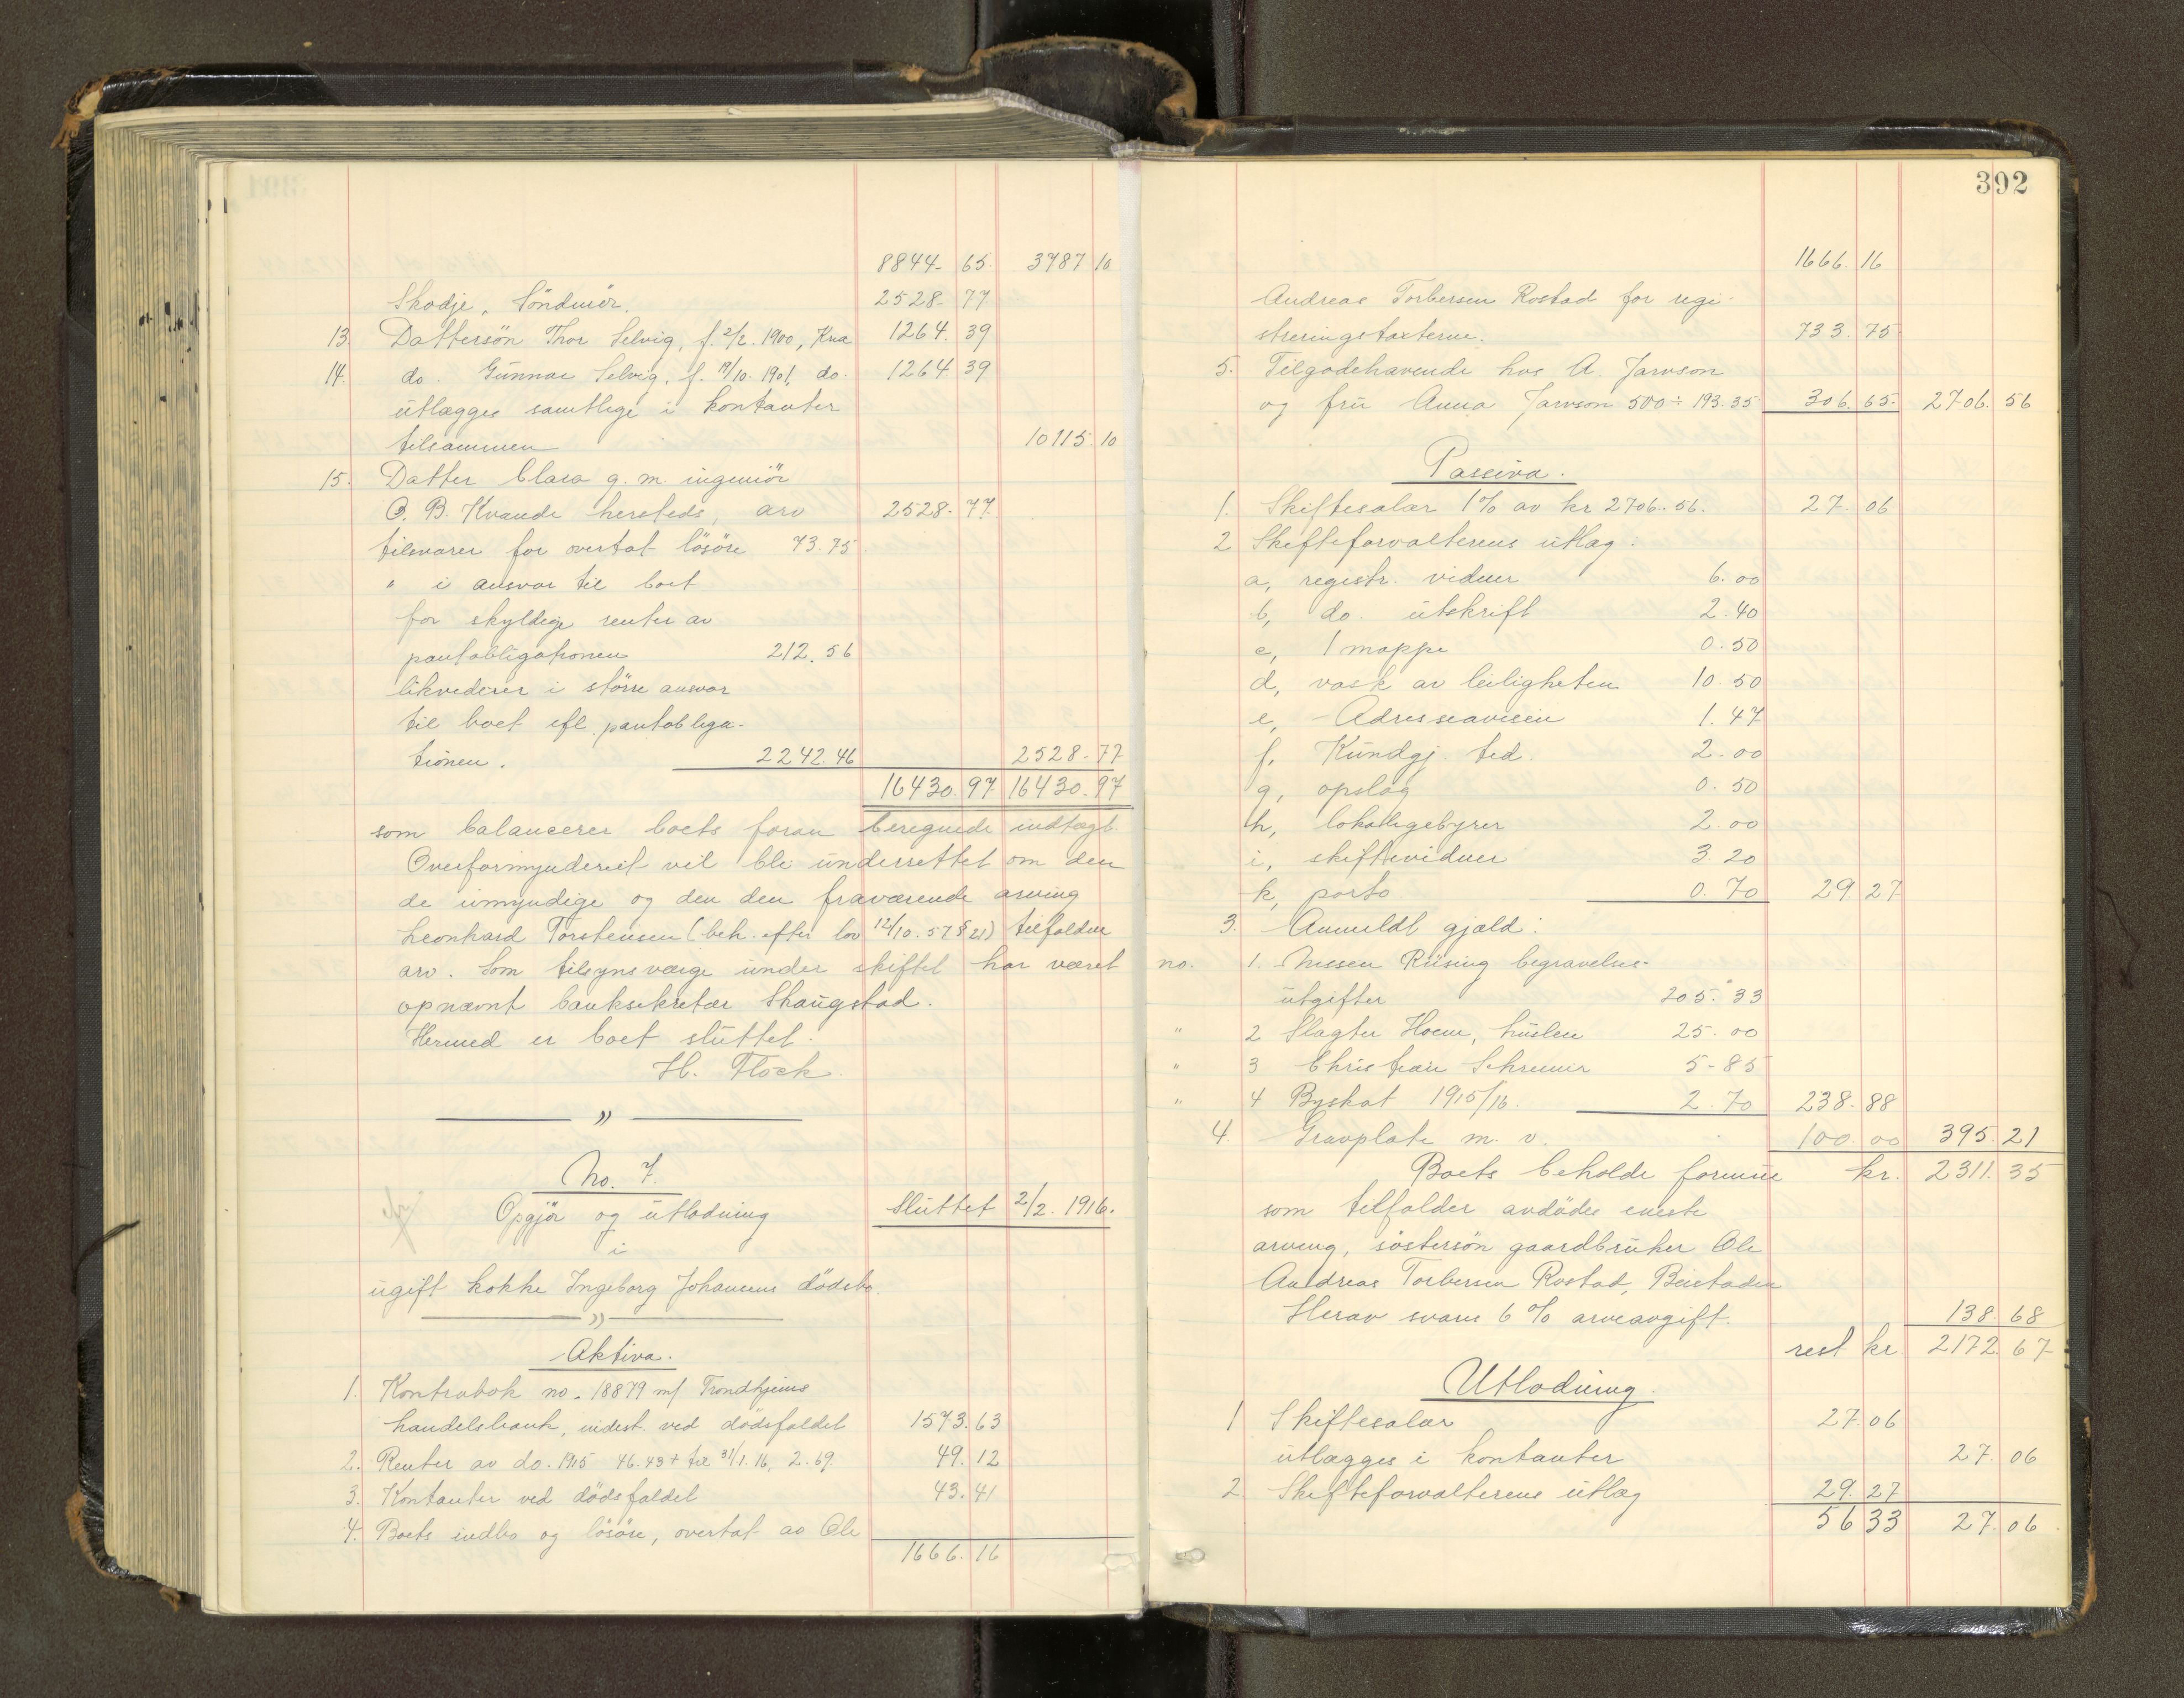 8844. 65 3787 10
Skodje, Söndmör. 2528. 77
13. Dattersön Thor Selvig, f. 2/2. 1900, Kna 1264. 39
14. do. Gunnar Selvig, f. 19/10. 1901, do. 1264 39
utlægges samtlige i kontanter
tilsammen 10115. 10
15. Datter Clara g. m. ingeniör
O. B. Kvande hersteds, arv 2528. 77
tilsvarer for overtat lösöre 73.75
" i ansvar til boet
for skyldige renter av
pantobligationen 212.56
likviderer i större ansvar
til boet ifl. pantobliga-
tionen. 2242.46 2528. 77
16430. 97 16430. 97
som balancerer boets foran beregnede indtægt.
Overformynderiet vil bli underrettet om den
de umyndige og den den fraværende arving
Leonhard Torstensen (beh. efter lov 12/10. 57 § 21) tilfaldne
arv. Som tilsynsværge under skiftet har været
opnævnt banksekretær Skaugstad.
Hermed er boet sluttet.
H. Flock.
"
No. 7.
Opgjör og utlodning Sluttet 2/2. 1916.
i
ugift kokke Ingeborg Johansens dödsbo.
"
Aktiva.
1. Kontrabok no. 18879 m/ Trondhjems
handelsbank, indest. ved dödsfaldet 1573. 63
2. Renter av do. 1915 46.43 + til 31/1. 16, 2.69. 49. 12
3. Kontanter ved dödsfaldet 43. 41
4. Boets indbo og lösöre, overtat av Ole
1666. 16
392
1666. 16
Andreas Torbersen Rostad for regi-
streringstaxterne. 733. 75
5. Tilgodehavende hos A. Jarvson
og fru Anna Jarvson 500 ÷ 193.35 306. 65. 2706. 56
Passiva.
1. Skiftesalær 1% av kr 2706.56. 27. 06
2 Skifteforvalterens utlæg:
a, registr. vidner 6.00
b, do. utskrift 2.40
c, 1 mappe 0.50
d, vask av leiligheten 10.50
e, Adresseavisen 1.47
f, Kundgj. tid. 2.00
g, opslag 0.50
h, lokalgebyrer 2.00
i, skiftevidner 3.20
k, porto 0.70 29. 27
3. Anmeldt gjæld:
no. 1. Nissen Riising begravelses-
utgifter 205.33
" 2 Slagter Hoem, husleie 25.00
" 3 Christian Schreiner 5-85
" 4 Byskat 1915/16. 2.70 238. 88
4. Gravplate m. v. 100. 00 395. 21
Boets beholde formue kr. 2311. 35
som tilfalder avdödes eneste
arving, söstersön gaardbruker Ole
Andreas Torbersen Rostad, Beistaden
Herav svares 6% arveavgift. 138. 68
rest kr 2172. 67
Utlodning.
1 Skiftesalær 27. 06
utlægges i kontanter 27. 06
2 Skifteforvalterens utlæg 29. 27
56 33 27. 06